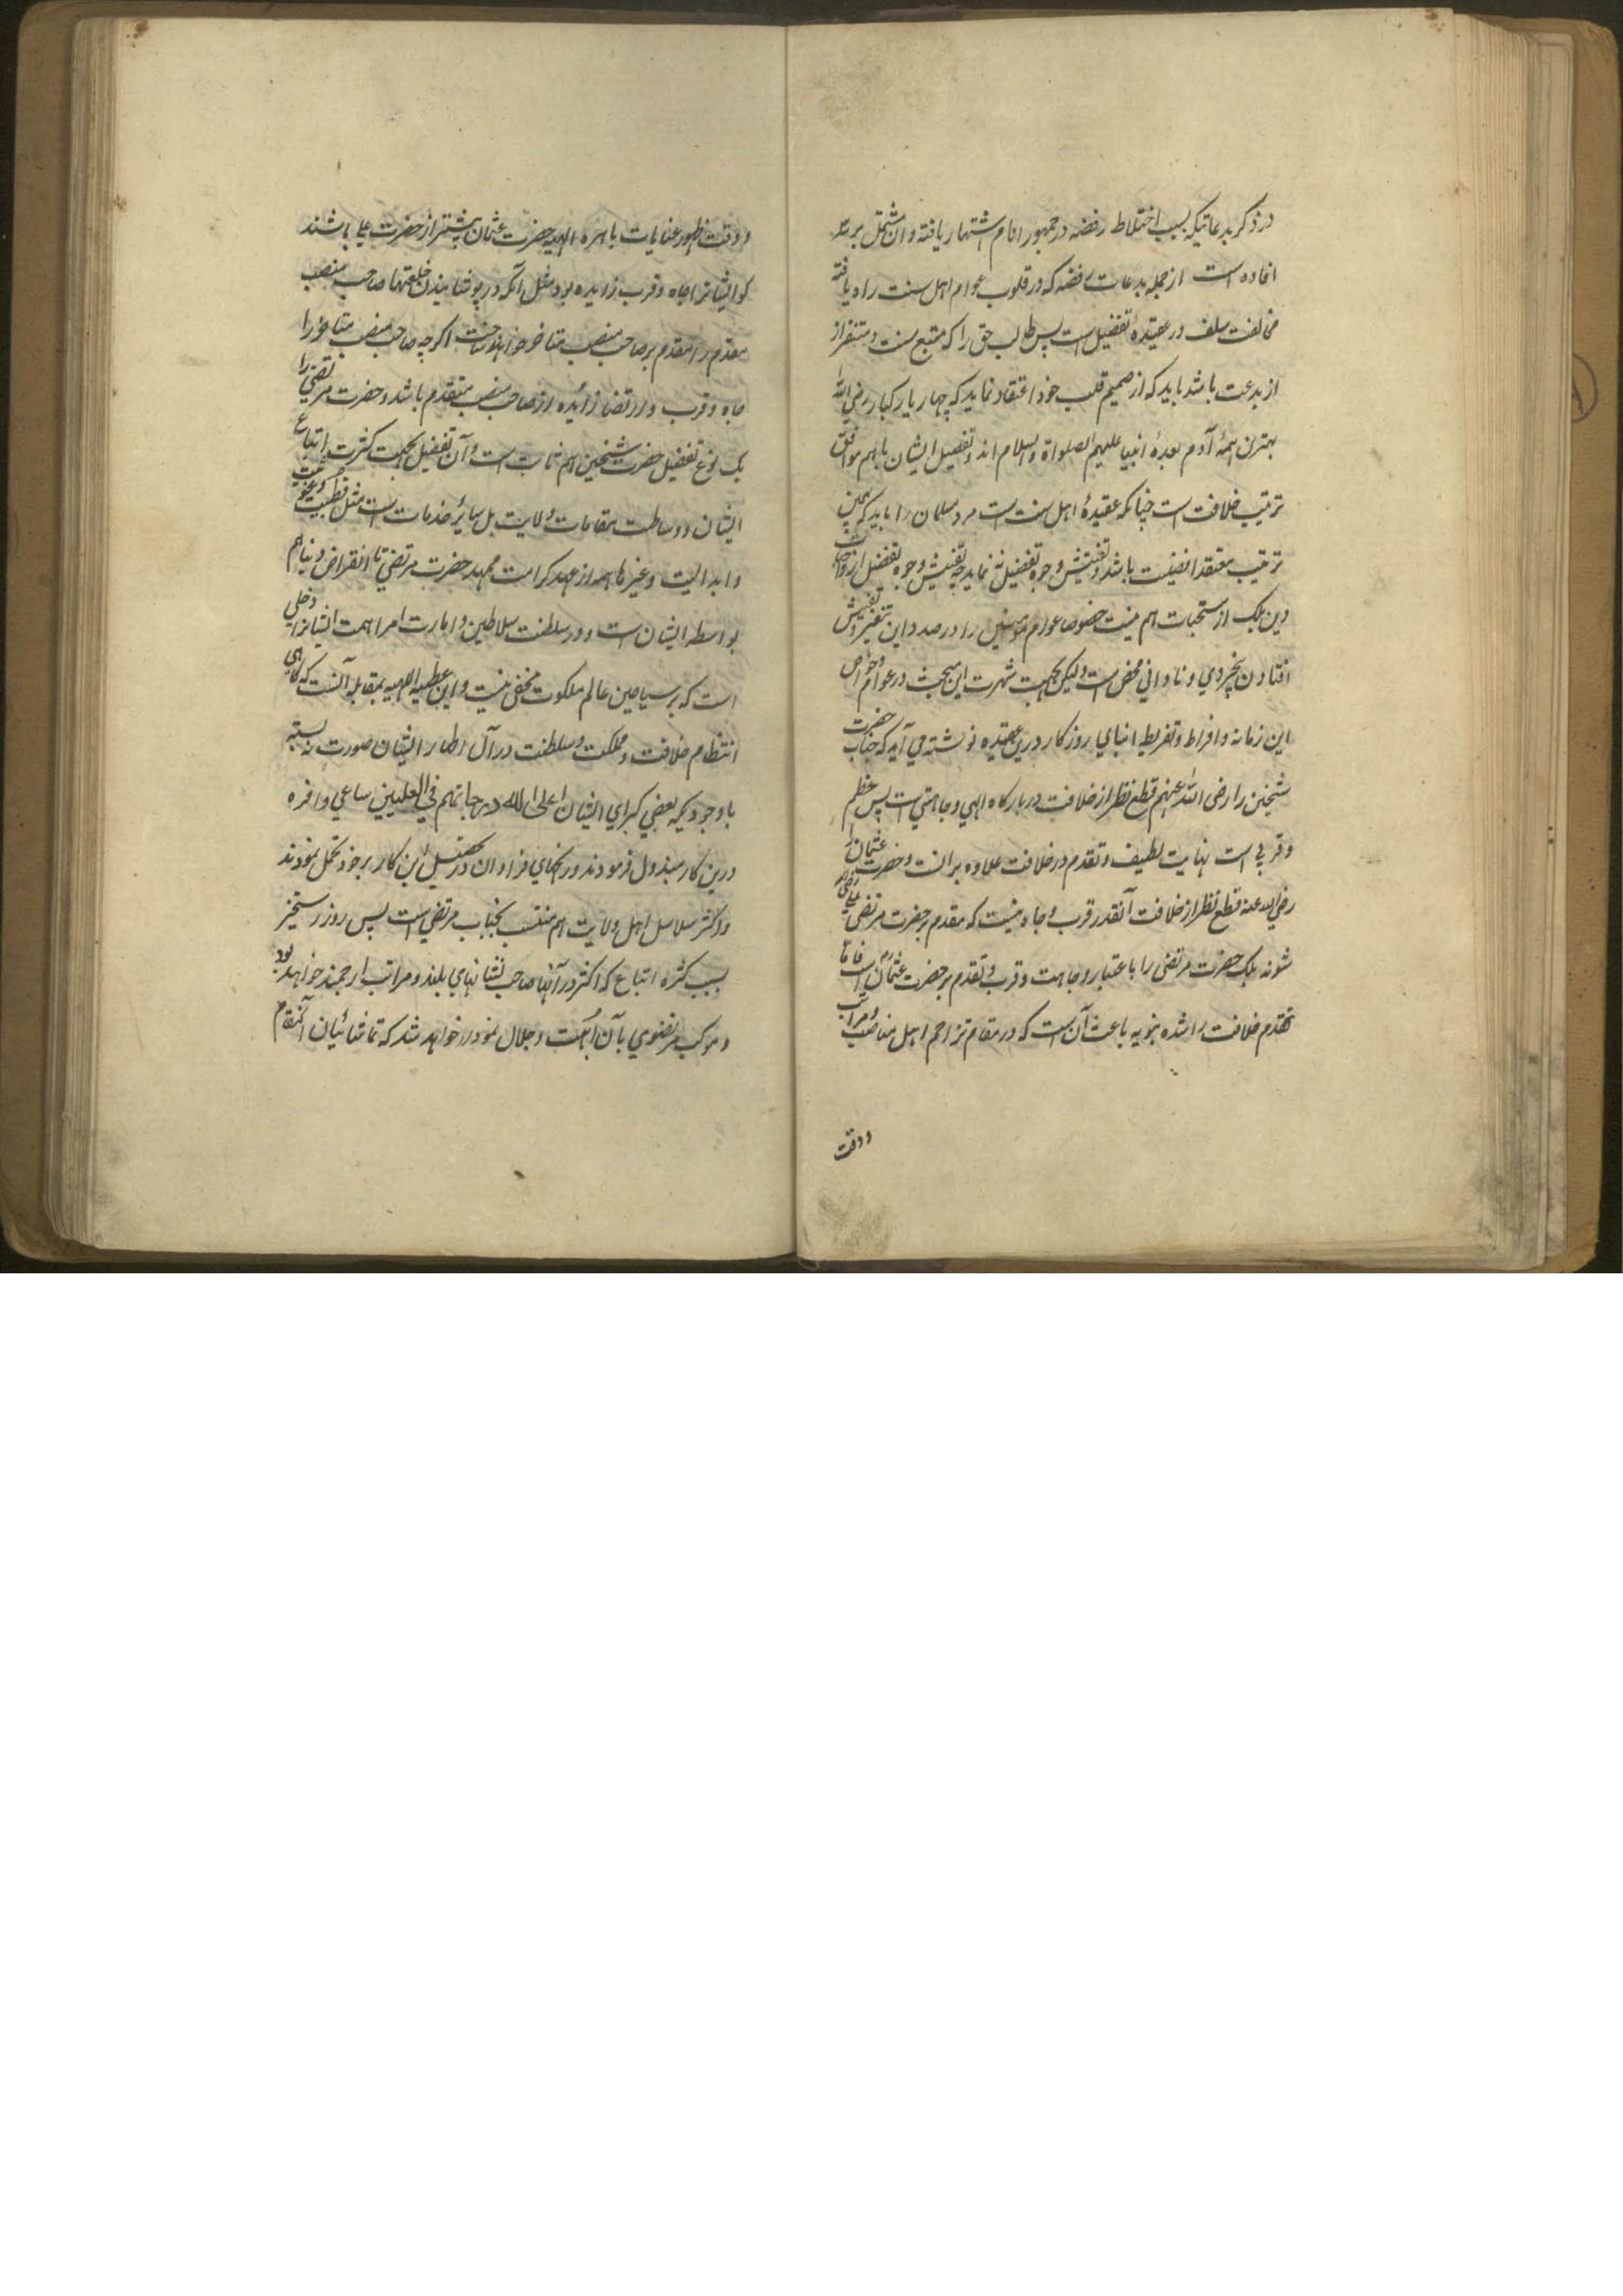 در ذکر بدعاتیکه بسبب اختلاط رفضه در جمهور انام اشتهار یافته و ان مشتمل بر سه
افاده است از جمله بدعات رفضه که در قلوب عوام اهل سنت راه یافته
مخالفت سلف در عقیدهٔ تفضیل است پس طالب حق را که متبع سنت و متنفر از
از بدعت باشد باید که از صمیم قلب خود اعتقاد نماید که چهار یار کبار رضی الله
بهترین همهٔ آدم بعدهٔ انبیا علیهم الصلواة والسلام اند و تفضیل ایشان باهم موافق
ترتیب خلافت است چنانکه عقیدهٔ اهل سنت است مرد مسلمان را باید که همین
ترتیب معتقد افضلیت باشد و تفتیش وجوه تفضیل نه نماید چه تفتیش وجوه تفضیل از واجبات
دین بلک از مستحبات هم نیست خصوصا عوام مؤمنین را در صدد این تفتیش
افتادن بیخردی و نادانی محض است ولیکن بجهت شهرت این مبحث در عوام و خواص
این زمانه و افراط و تفریط ابنای روزگار درین عقیده نوشته می آید که جناب حضرت
شیخین را رضی الله عنهم قطع نظر از خلافت در بارگاه الهی وجاهتی است بس عظم
و قربی است نهایت لطیف و تقدم در خلافت علاوه برانست و حضرت عثمان را
رضی الله عنه قطع نظر از خلافت آنقدر قرب و جاه نیست که مقدم بر حضرت مرتضی علی
شوند بلک حضرت مرتضی را باعتبار وجاهت و قرب و تقدم بر حضرت عثمان است فاما
تقدم خلافت راشده نبویه باعث آن است که در مقام تزاحم اهل مناصب و مراتب
ووقت
ووقت ظهور عنایات باهره الهیه حضرت عثمان پیشتر از حضرت علی باشند
گو ایشانرا جاه و قرب زایده بود مثل آنکه در پوشانیدن خلعتها صاحب منصب
مقدم را مقدم بر صاحب منصب متاخر خواهند ساخت اگرچه صاحب منصب متاخر را
جاه و قرب و ارتضا زایده از صاحب منصب متقدم باشد و حضرت مرتضی را
یک نوع تفضیل حضرت شیخین هم ثابت است و آن تفضیل بجهت کثرت اتباع
ایشان و وساطت مقامات ولایت بل سایر خدمات است مثل قطبیت و غوثیت
و ابدالیت و غیرها همه از عهد کرامت مهد حضرت مرتضی تا انقراض دنیا هم
بواسطه ایشان است و در سلطنت سلاطین و امارت امرا همت ایشانرا دخلی
است که بر سیاحین عالم ملکوت مخفی نیست و این عطیه الهیه بمقابله آنست که گاهی
انتظام خلافت و مملکت و سلطنت در آل اطهار ایشان صورت نه بسته
باوجودیکه بعضی کبرای ایشان اعلی الله درجاتهم فی العلیین ساعی وافره
درین کار مبذول فرمودند و رنجهای فراوان در تحصیل این کار بر خود تحمل نمودند
و اکثر سلاسل اهل ولایت هم منتسب بجناب مرتضی است پس روز رستخیز
بسبب کثره اتباع که اکثر در آنها صاحب نشانهای بلند و مراتب ارجمند خواهد بود
و موکب مرتضوی بآن ابهت و جلال نمودار خواهد شد که تماشائیان آنمقام